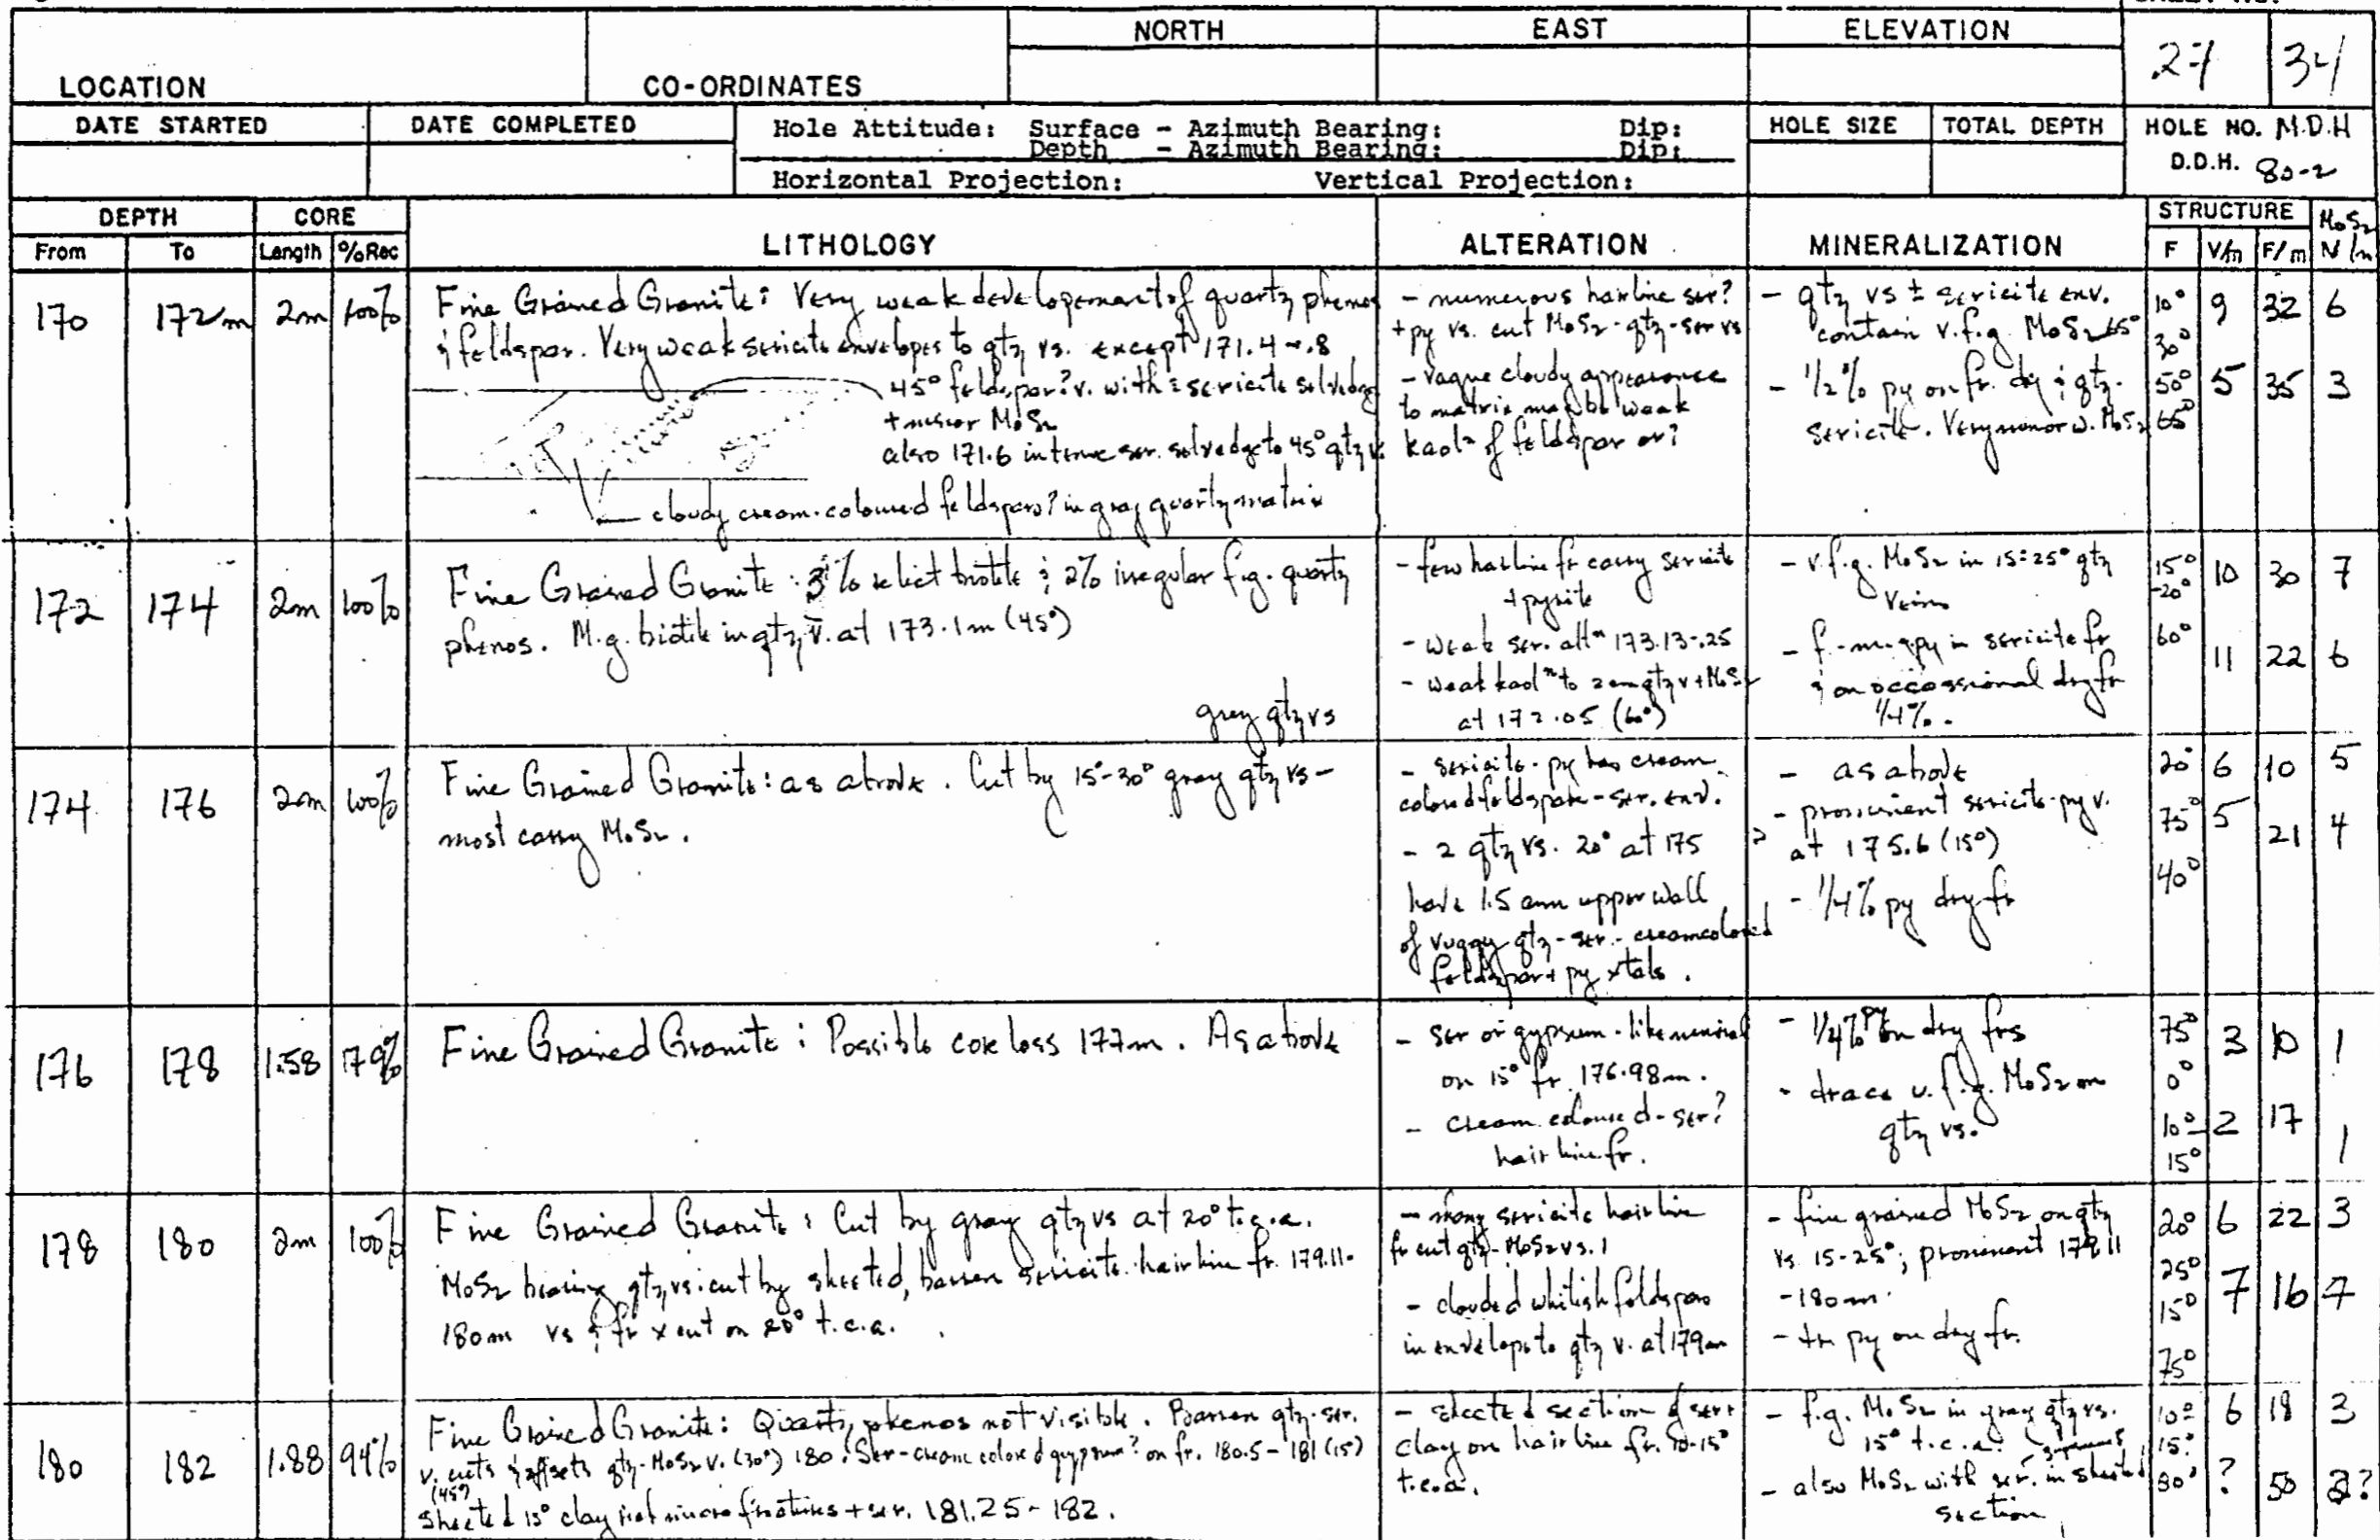 NORTH EAST ELEVATION
LOCATION CO-ORDINATES 27 34
DATE STARTED DATE COMPLETED Hole Attitude: Surface - Azimuth Bearing: Dip: HOLE SIZE TOTAL DEPTH HOLE NO. M.D.H
Depth - Azimuth Bearing: Dip:
D.D.H. 80-2
Horizontal Projection: Vertical Projection:
DEPTH CORE LITHOLOGY ALTERATION MINERALIZATION STRUCTURE MoS2
From To Length %Rec F V/m F/m N/m
170 172m 2m 100%
Fine Grained Granite: Very weak developemant of quartz phenos
& feldspar. Very weak sericite envelopes to qtz vs. except 171.4-.8
45° feldspar? v. with ± sericite selvedge
+ minor MoS2
also 171.6 intense ser. selvedge to 45° qtz v.
cloudy cream-coloured feldspars? in gray quartz matrix
- numerous hairline ser?
+ py vs. cut MoS2-qtz-ser vs
- vague cloudy appearance
to matrix may be weak
kaoln of feldspar or?
- qtz vs ± sericite env.
contain v.f.g. MoS2 65°
- 1/2% py on fr. dry & qtz-
sericite. Very minor w. MoS2
10° 9 32 6
30°
50° 5 35 3
65°
172 174 2m 100%
Fine Grained Granite: 3% relict biotite & 2% irregular f.g. quartz
phenos. M.g. biotite in qtz v. at 173.1m (45°)
grey qtz vs
- few hairline fr carry sericite
+ pyrite
- weak ser. altn 173.13-.25
- weak kaoln to 2cm qtz v + MoS2
at 172.05 (60°)
- v.f.g. MoS2 in 15-25° qtz
veins
- f.-m.g. py in sericite fr
& on occassional dry fr
1/4%.
15° 10 30 7
-20°
60° 11 22 6
174 176 2m 100%
Fine Grained Granite: as above. Cut by 15°-30° gray qtz vs -
most carry MoS2.
- sericite-py has cream
colored feldspar-ser. env.
- 2 qtz vs. 20° at 175
have 1.5 cm upper wall
of vuggy qtz-ser.-cream colored
feldspar + py xtals.
- as above
- prominent sericite-py v.
at 175.6 (15°)
- 1/4% py dry fr
20° 6 10 5
75° 5 21 4
40°
176 178 1.58 79%
Fine Grained Granite: Possible core loss 177m. As above
- ser or gypsum-like mineral
on 15° fr. 176.98m.
- cream coloured-ser?
hairline fr.
- 1/4% py on dry frs
- trace v.f.g. MoS2 on
qtz vs.
75° 3 10 1
0°
10°- 2 17 1
15°
178 180 2m 100%
Fine Grained Granite: Cut by gray qtz vs at 20° t.c.a.
MoS2 bearing qtz vs. cut by sheeted, barren sericite hairline fr. 179.11-
180m vs & fr x cut on 20° t.c.a.
- many sericite hairline
fr cut qtz-MoS2 vs.
- clouded whitish feldspar
in envelope to qtz v. at 179m
- fine grained MoS2 on qtz
vs 15-25°; prominent 179.11
-180m.
- tr py on dry fr.
20° 6 22 3
25°
15° 7 16 7
75°
180 182 1.88 94%
Fine Grained Granite: Quartz phenos not visible. Barren qtz-ser.
v. cuts & offsets qtz-MoS2 v. (30°) 180. Ser-cream colored gypsum? on fr. 180.5-181 (15°)
(45°)
Sheeted 15° clay rich micro fractures + ser. 181.25-182.
- sheeted section of ser +
clay on hairline fr. 10-15°
t.c.a.
- f.g. MoS2 in gray qtz vs.
15° t.c.a.
- also MoS2 with ser. in sheeted
section
10° 6 18 3
15°
30° ? 50 3?